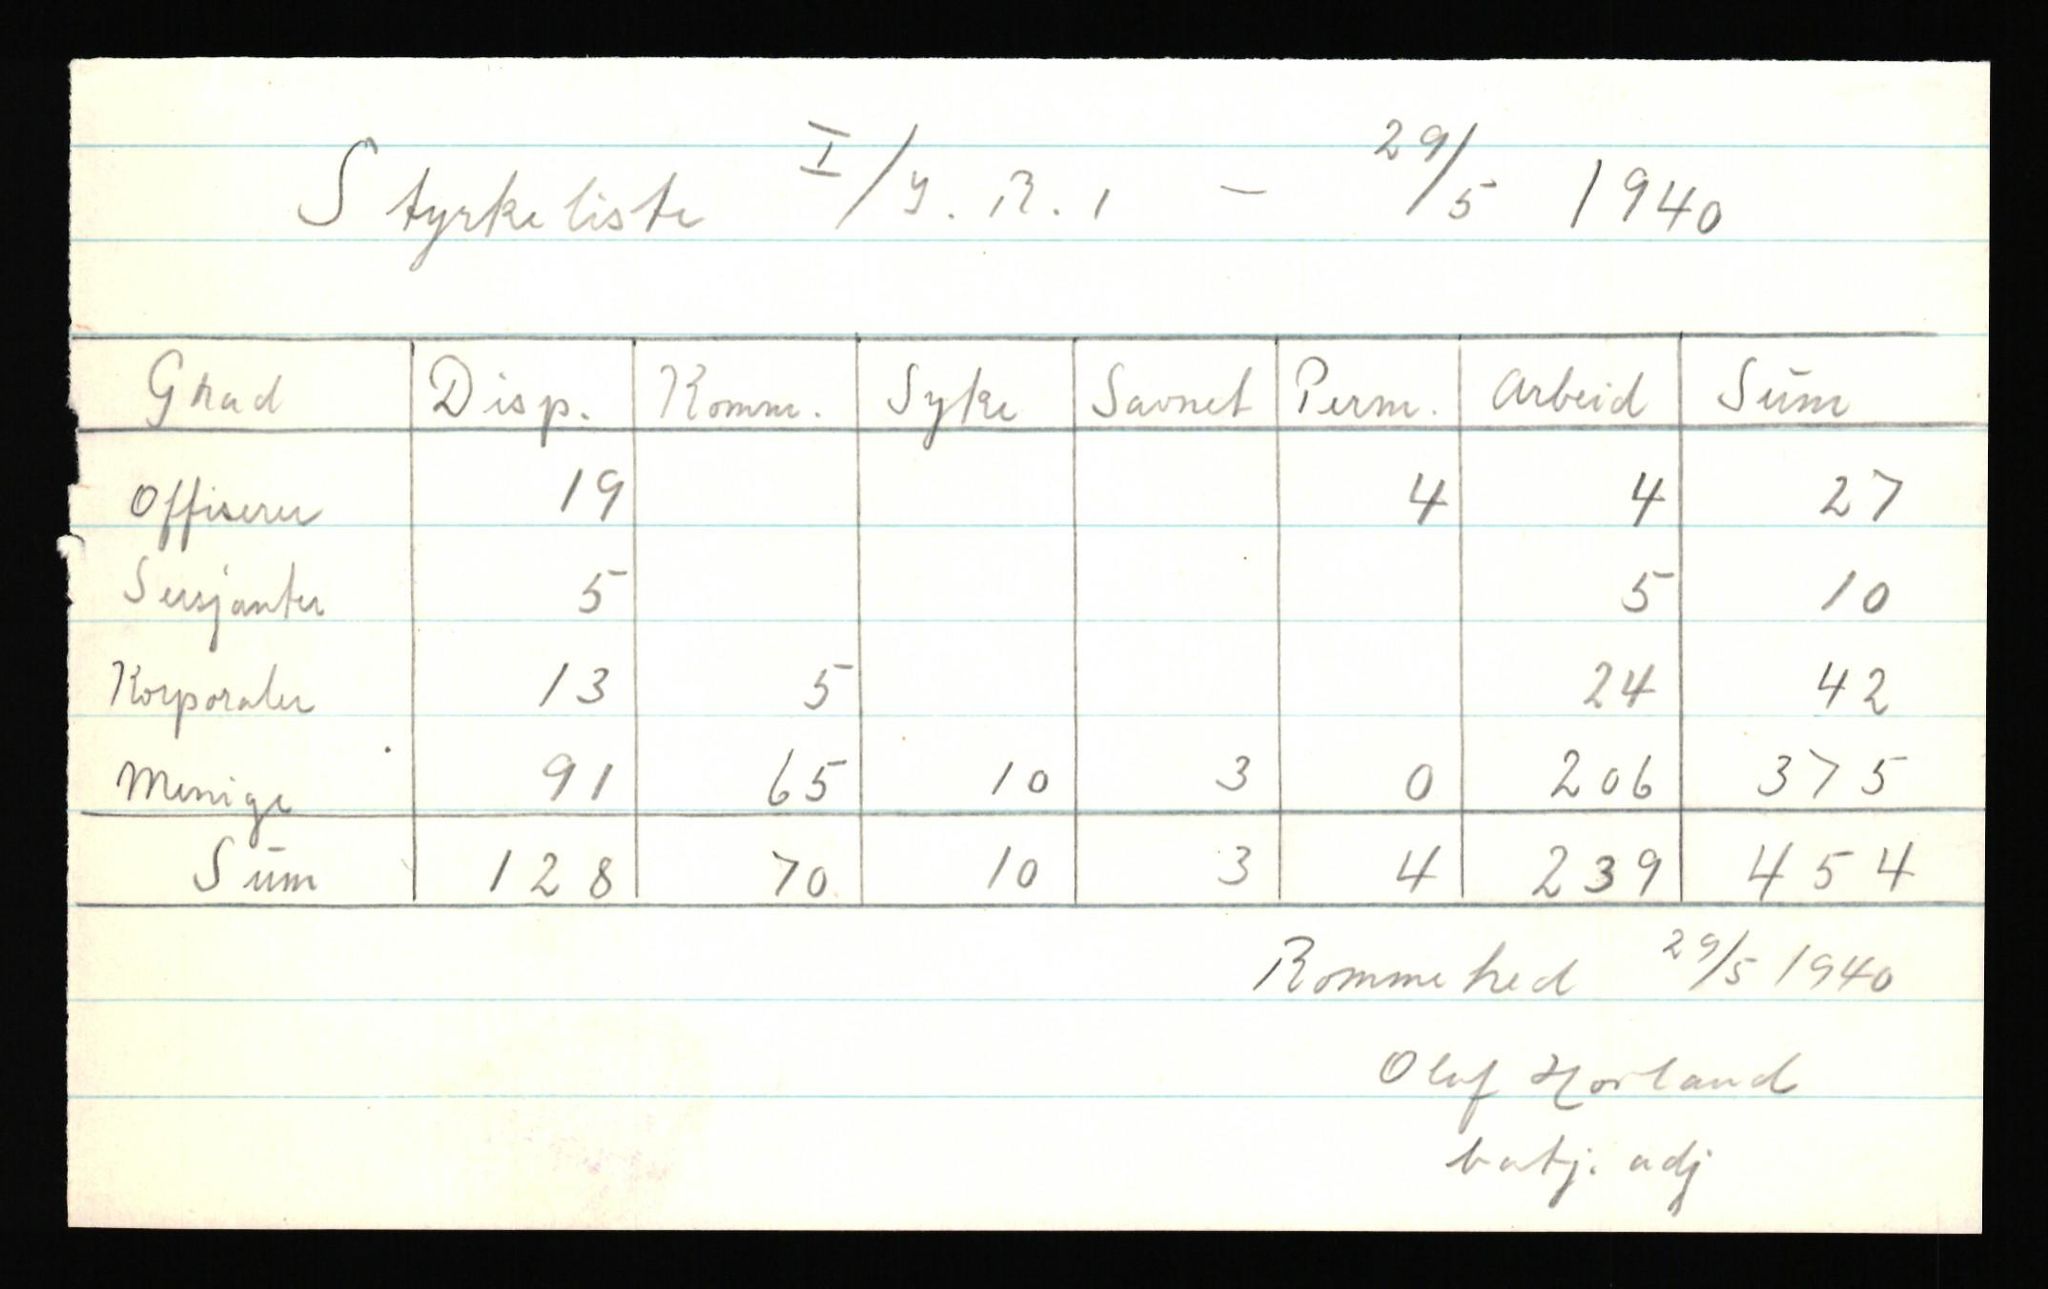 Styrkeliste I/I.R.1 – 29/5 1940
Grad Disp. Komm. Syke Savnet Perm. Arbeid Sum
Offiserer 19 4 4 27
Sersjanter 5 5 10
Korporaler 13 5 24 42
Menige 91 65 10 3 0 206 375
Sum 128 70 10 3 4 239 454
Rommehed 29/5 1940
Olaf
batj. adj